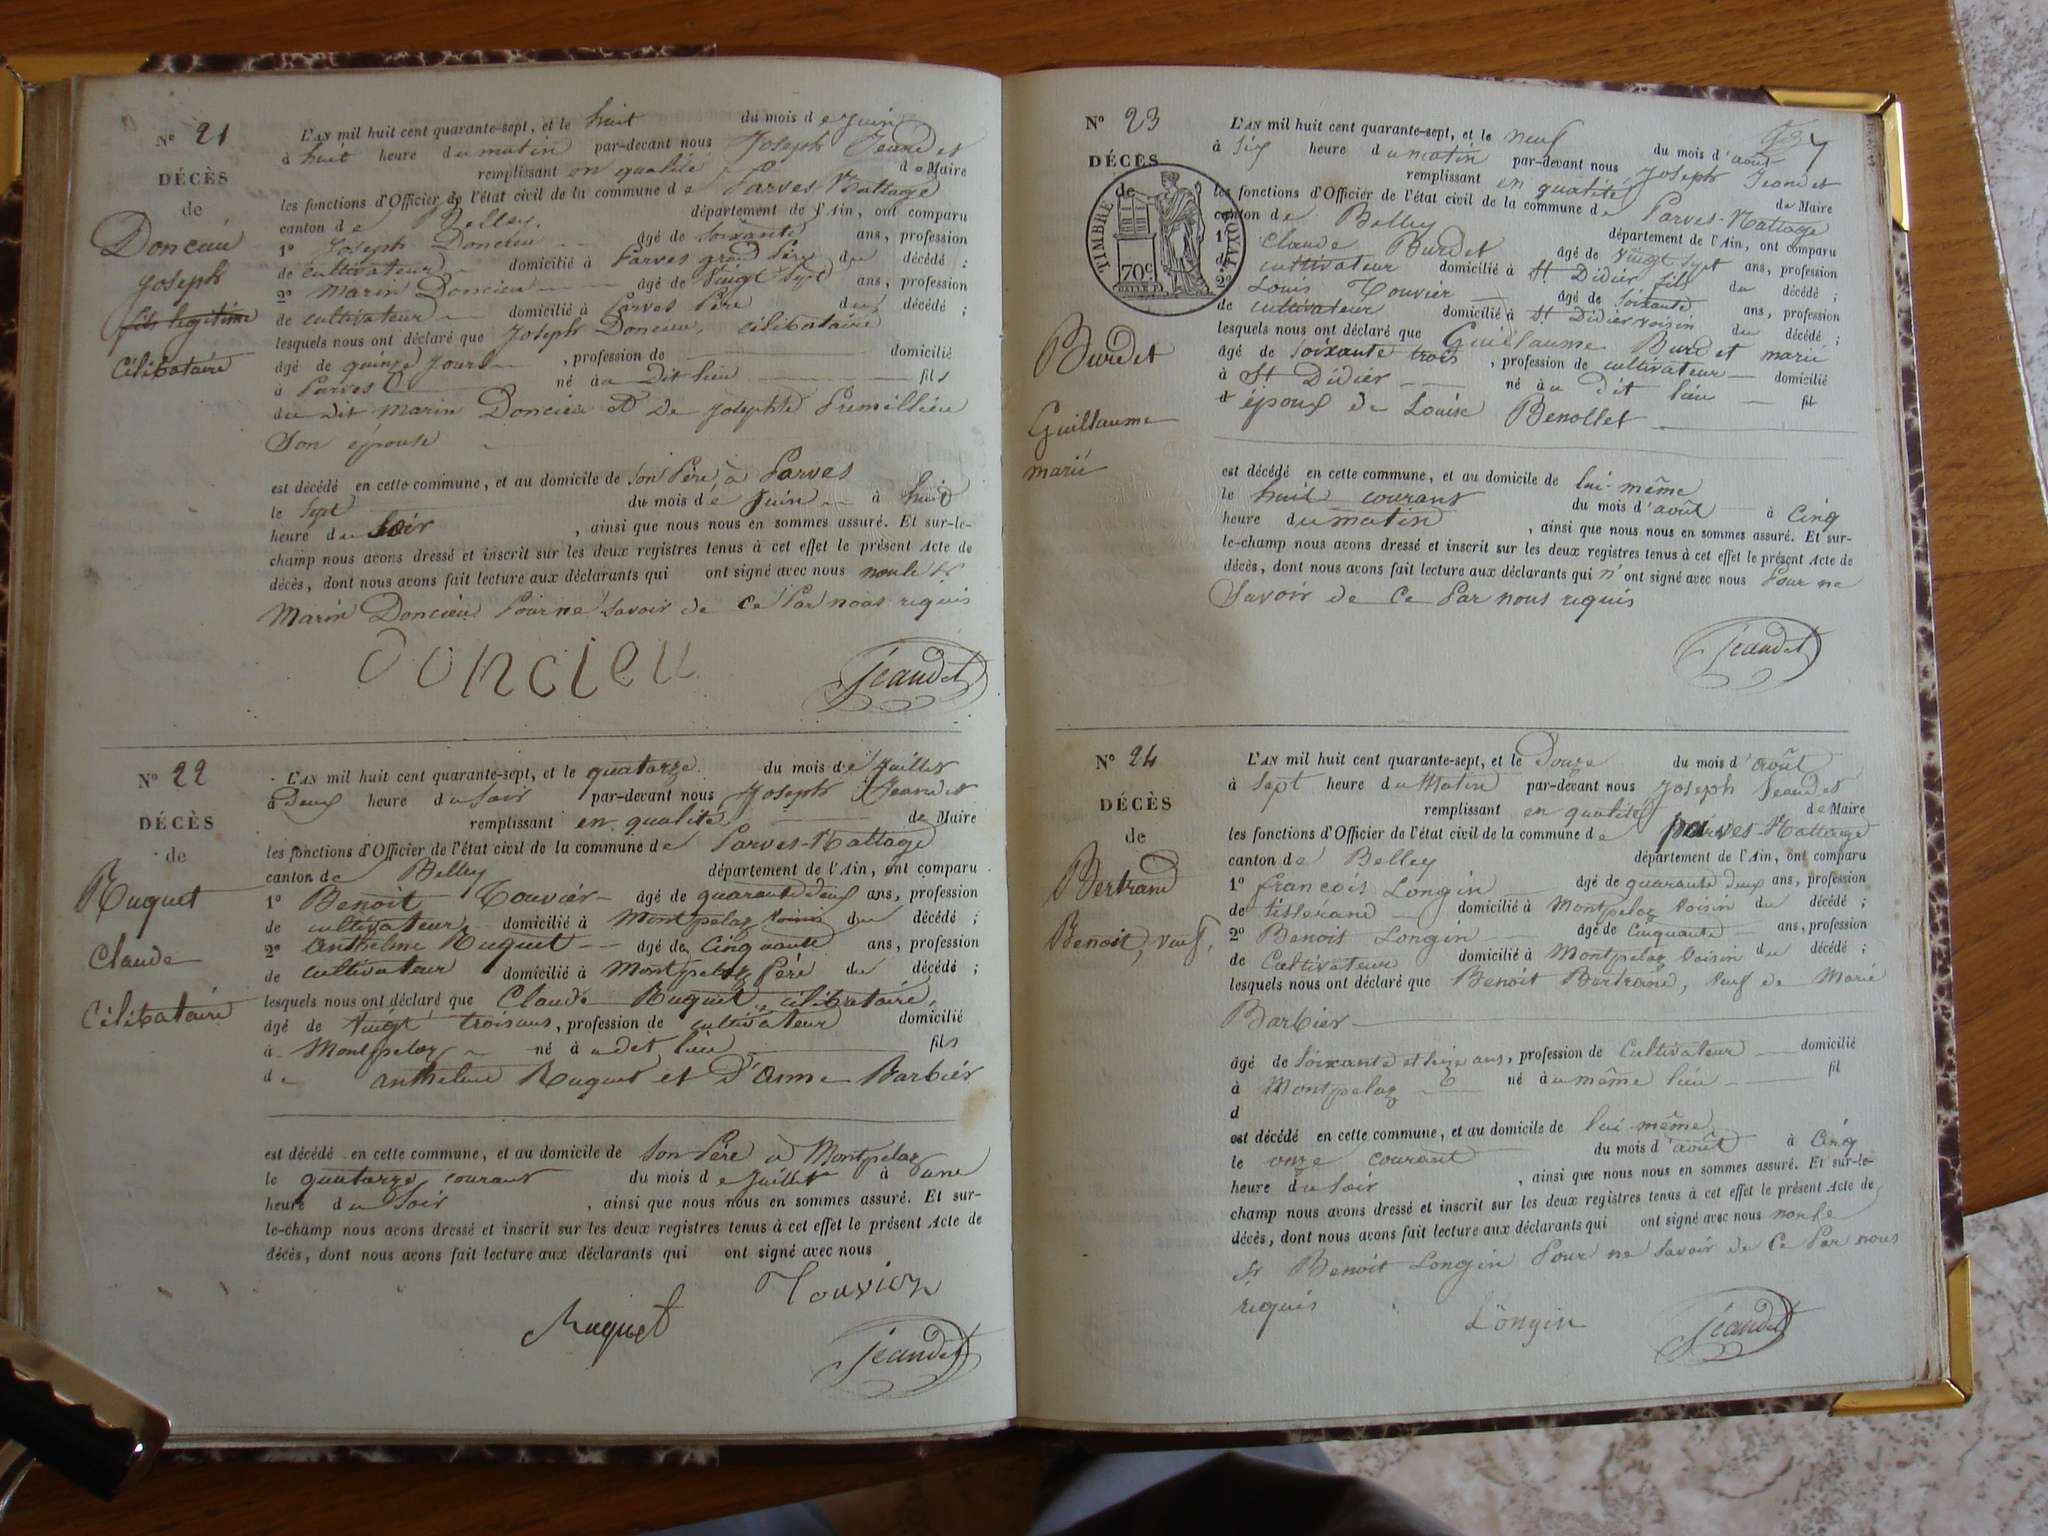 Nº 21
DÉCÈS
de
Doncieu
Joseph
fils légitime
Célibataire
L'AN mil huit cent quarante-sept, et le huit du mois de juin
à huit heure du matin par-devant nous Joseph Jeandet
remplissant en qualité de Maire
les fonctions d'Officier de l'état civil de la commune de Parves-Nattage
canton de Belley. département de l'Ain, ont comparu
1º Joseph Doncieu âgé de soixante ans, profession
de cultivateur domicilié à Parves grand Père du décédé ;
2º Marin Doncieu âgé de vingt sept ans, profession
de cultivateur domicilié à Parves Père du décédé ;
lesquels nous ont déclaré que Joseph Doncieu, célibataire
âgé de quinze jours , profession de domicilié
à Parves né au dit lieu fils
du dit Marin Doncieu et de Josephte Premillieu
son épouse
est décédé en cette commune, et au domicile de son Père, à Parves
le sept du mois de juin à huit
heure du soir , ainsi que nous nous en sommes assuré. Et sur-le-
champ nous avons dressé et inscrit sur les deux registres tenus à cet effet le présent Acte de
décès, dont nous avons fait lecture aux déclarants qui ont signé avec nous non le Sr
Marin Doncieu Pour ne savoir de ce Par nous requis
Doncieu
Jeandet
Nº 22
DÉCÈS
de
Ruguet
Claude
Célibataire
L'AN mil huit cent quarante-sept, et le quatorze du mois de juillet
à deux heure du soir par-devant nous Joseph Jeandet
remplissant en qualité de Maire
les fonctions d'Officier de l'état civil de la commune de Parves-Nattage
canton de Belley département de l'Ain, ont comparu
1º Benoit Touvier âgé de quarante deux ans, profession
de cultivateur domicilié à Montpelaz voisin du décédé ;
2º Anthelme Ruguet âgé de cinquante ans, profession
de cultivateur domicilié à Montpelaz Père du décédé ;
lesquels nous ont déclaré que Claude Ruguet, célibataire,
âgé de vingt trois ans, profession de cultivateur domicilié
à Montpelaz né au det lieu fils
de Anthelme Ruguet et D'Anne Barbier
est décédé en cette commune, et au domicile de son Père à Montpelaz
le quatorze courant du mois de juillet à une
heure du soir , ainsi que nous nous en sommes assuré. Et sur-
le-champ nous avons dressé et inscrit sur les deux registres tenus à cet effet le présent Acte de
décès, dont nous avons fait lecture aux déclarants qui ont signé avec nous
Touvier
Ruguet
Jeandet
Nº 23
DÉCÈS
de
TIMBRE ROYAL
70c
Burdet
Guillaume
marié
L'AN mil huit cent quarante-sept, et le neuf du mois d'août
à six heure du matin par-devant nous Joseph Jeandet
remplissant en qualité de Maire
les fonctions d'Officier de l'état civil de la commune de Parves-Nattage
canton de Belley département de l'Ain, ont comparu
1º Claude Burdet âgé de vingt sept ans, profession
de cultivateur domicilié à St Didier fils du décédé ;
2º Louis Touvier âgé de soixante ans, profession
de cultivateur domicilié à St Didier voisin du décédé ;
lesquels nous ont déclaré que Guillaume Burdet marié
âgé de soixante trois , profession de cultivateur domicilié
à St Didier né au dit lieu fil
d époux de Louise Benollet
est décédé en cette commune, et au domicile de lui-même
le huit courant du mois d'août à cinq
heure du matin , ainsi que nous nous en sommes assuré. Et sur-
le-champ nous avons dressé et inscrit sur les deux registres tenus à cet effet le présent Acte de
décès, dont nous avons fait lecture aux déclarants qui n'ont signé avec nous Pour ne
Savoir de ce Par nous requis
Jeandet
Nº 24
DÉCÈS
de
Bertrand
Benoit, veuf,
L'AN mil huit cent quarante-sept, et le Douze du mois d'août
à sept heure du Matin par-devant nous Joseph Jeandet
remplissant en qualité de Maire
les fonctions d'Officier de l'état civil de la commune de parves-Nattage
canton de Belley département de l'Ain, ont comparu
1º François Longin âgé de quarante deux ans, profession
de tisserand domicilié à Montpelaz voisin du décédé ;
2º Benoit Longin âgé de cinquante ans, profession
de Cultivateur domicilié à Montpelaz voisin du décédé ;
lesquels nous ont déclaré que Benoit Bertrand, veuf de Marie
Barbier
âgé de soixante et seize ans, profession de Cultivateur domicilié
à Montpelaz né au même lieu fil
d
est décédé en cette commune, et au domicile de lui-même,
le onze courant du mois d'août à cinq
heure du soir , ainsi que nous nous en sommes assuré. Et sur-le-
champ nous avons dressé et inscrit sur les deux registres tenus à cet effet le présent Acte de
décès, dont nous avons fait lecture aux déclarants qui ont signé avec nous non le
Sr Benoit Longin Pour ne savoir de ce Par nous
requis
Longin
Jeandet